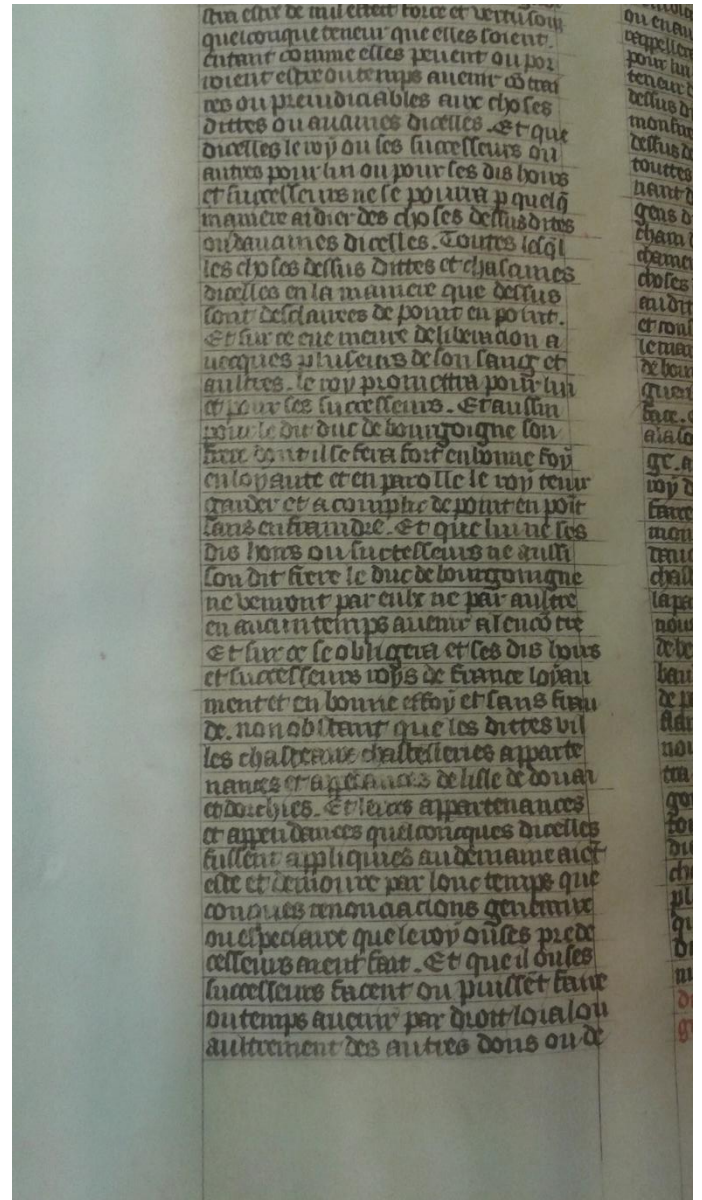 stra estre de nul effect force et vertu soiit
quelconque teneur que elles soient.
entant comme elles peuent ou por
roient estre ou temps auenir cōtrai
res ou preiudiciables aux choses
dittes ou aucunes dicelles. Et que
dicelles le roy ou ses successeurs ou
autres pour lui ou pour ses dis hoirs
et successeurs ne se pourra p quelq̄
maniere aidier des choses dessusdites
ou daucunes dicelles. Toutes lesql̄
les choses dessus dittes et chascunes
dicelles en la maniere que dessus
sont desclairees de point en point.
Et sur ce eue meure deliberacion a
uecques pluseurs de son sang et
aultres. le roy promettra pour lui
et pour ses successeurs. Et aussin
pour le dit duc de bourgoigne son
frere dont il se fera fort en bonne foy
en loyaute et en parolle le roy tenir
garder et acomplir de point en poit
sans enfraindre. Et que lui ne ses
dis hoirs ou successeurs ne aussi
son dit frere le duc de bourgoingne
ne venront par eulx ne par aultre
en aucun temps auenir al encōtre
Et sur ce se obligera et ses dis hoirs
et successeurs roys de france loyau
ment et en bonne effoy et sans frau
de. non obstant que les dittes vil
les chasteaux chastelleries apparte
nances et appendances de lille de douai
et dorchies. Et leurs appartenances
et appendances quelconcques dicelles
fussent appliquies au demaine aiēt
este et demoure par lonc temps que
conques renonciacions generaux
ou especiaux que le roy ou ses prede
cesseurs aient fait. Et que il ou ses
successeurs facent ou puissēt faire
ou temps auenir par droit loial ou
aultrement des autres dons ou de
ou en au
rappeller
pour lui
teneur d
dessus di
monstre
dessus d
touttes
nant d
gens d
cham
chame
choses
au dit
et conf
le mar
de bou
face.
a la so
ge. a
roy d
faire
mon
chast
la pa
nous
de be
bau
de p
nou
tra
go
du
ch
pl
qu